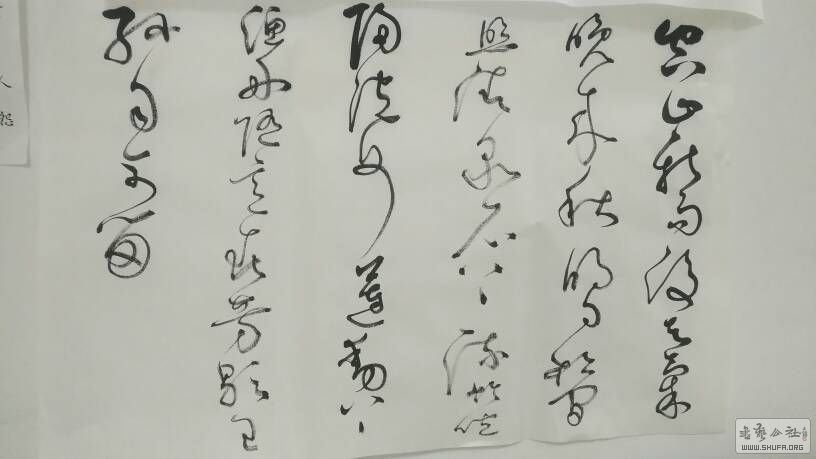 空山新雨後天氣
晚來秋明月松間
照清泉石上流竹喧
歸浣女蓮動下
漁舟隨意春芳歇王
孫自可留
书艺公社
WWW.SHUFA.ORG